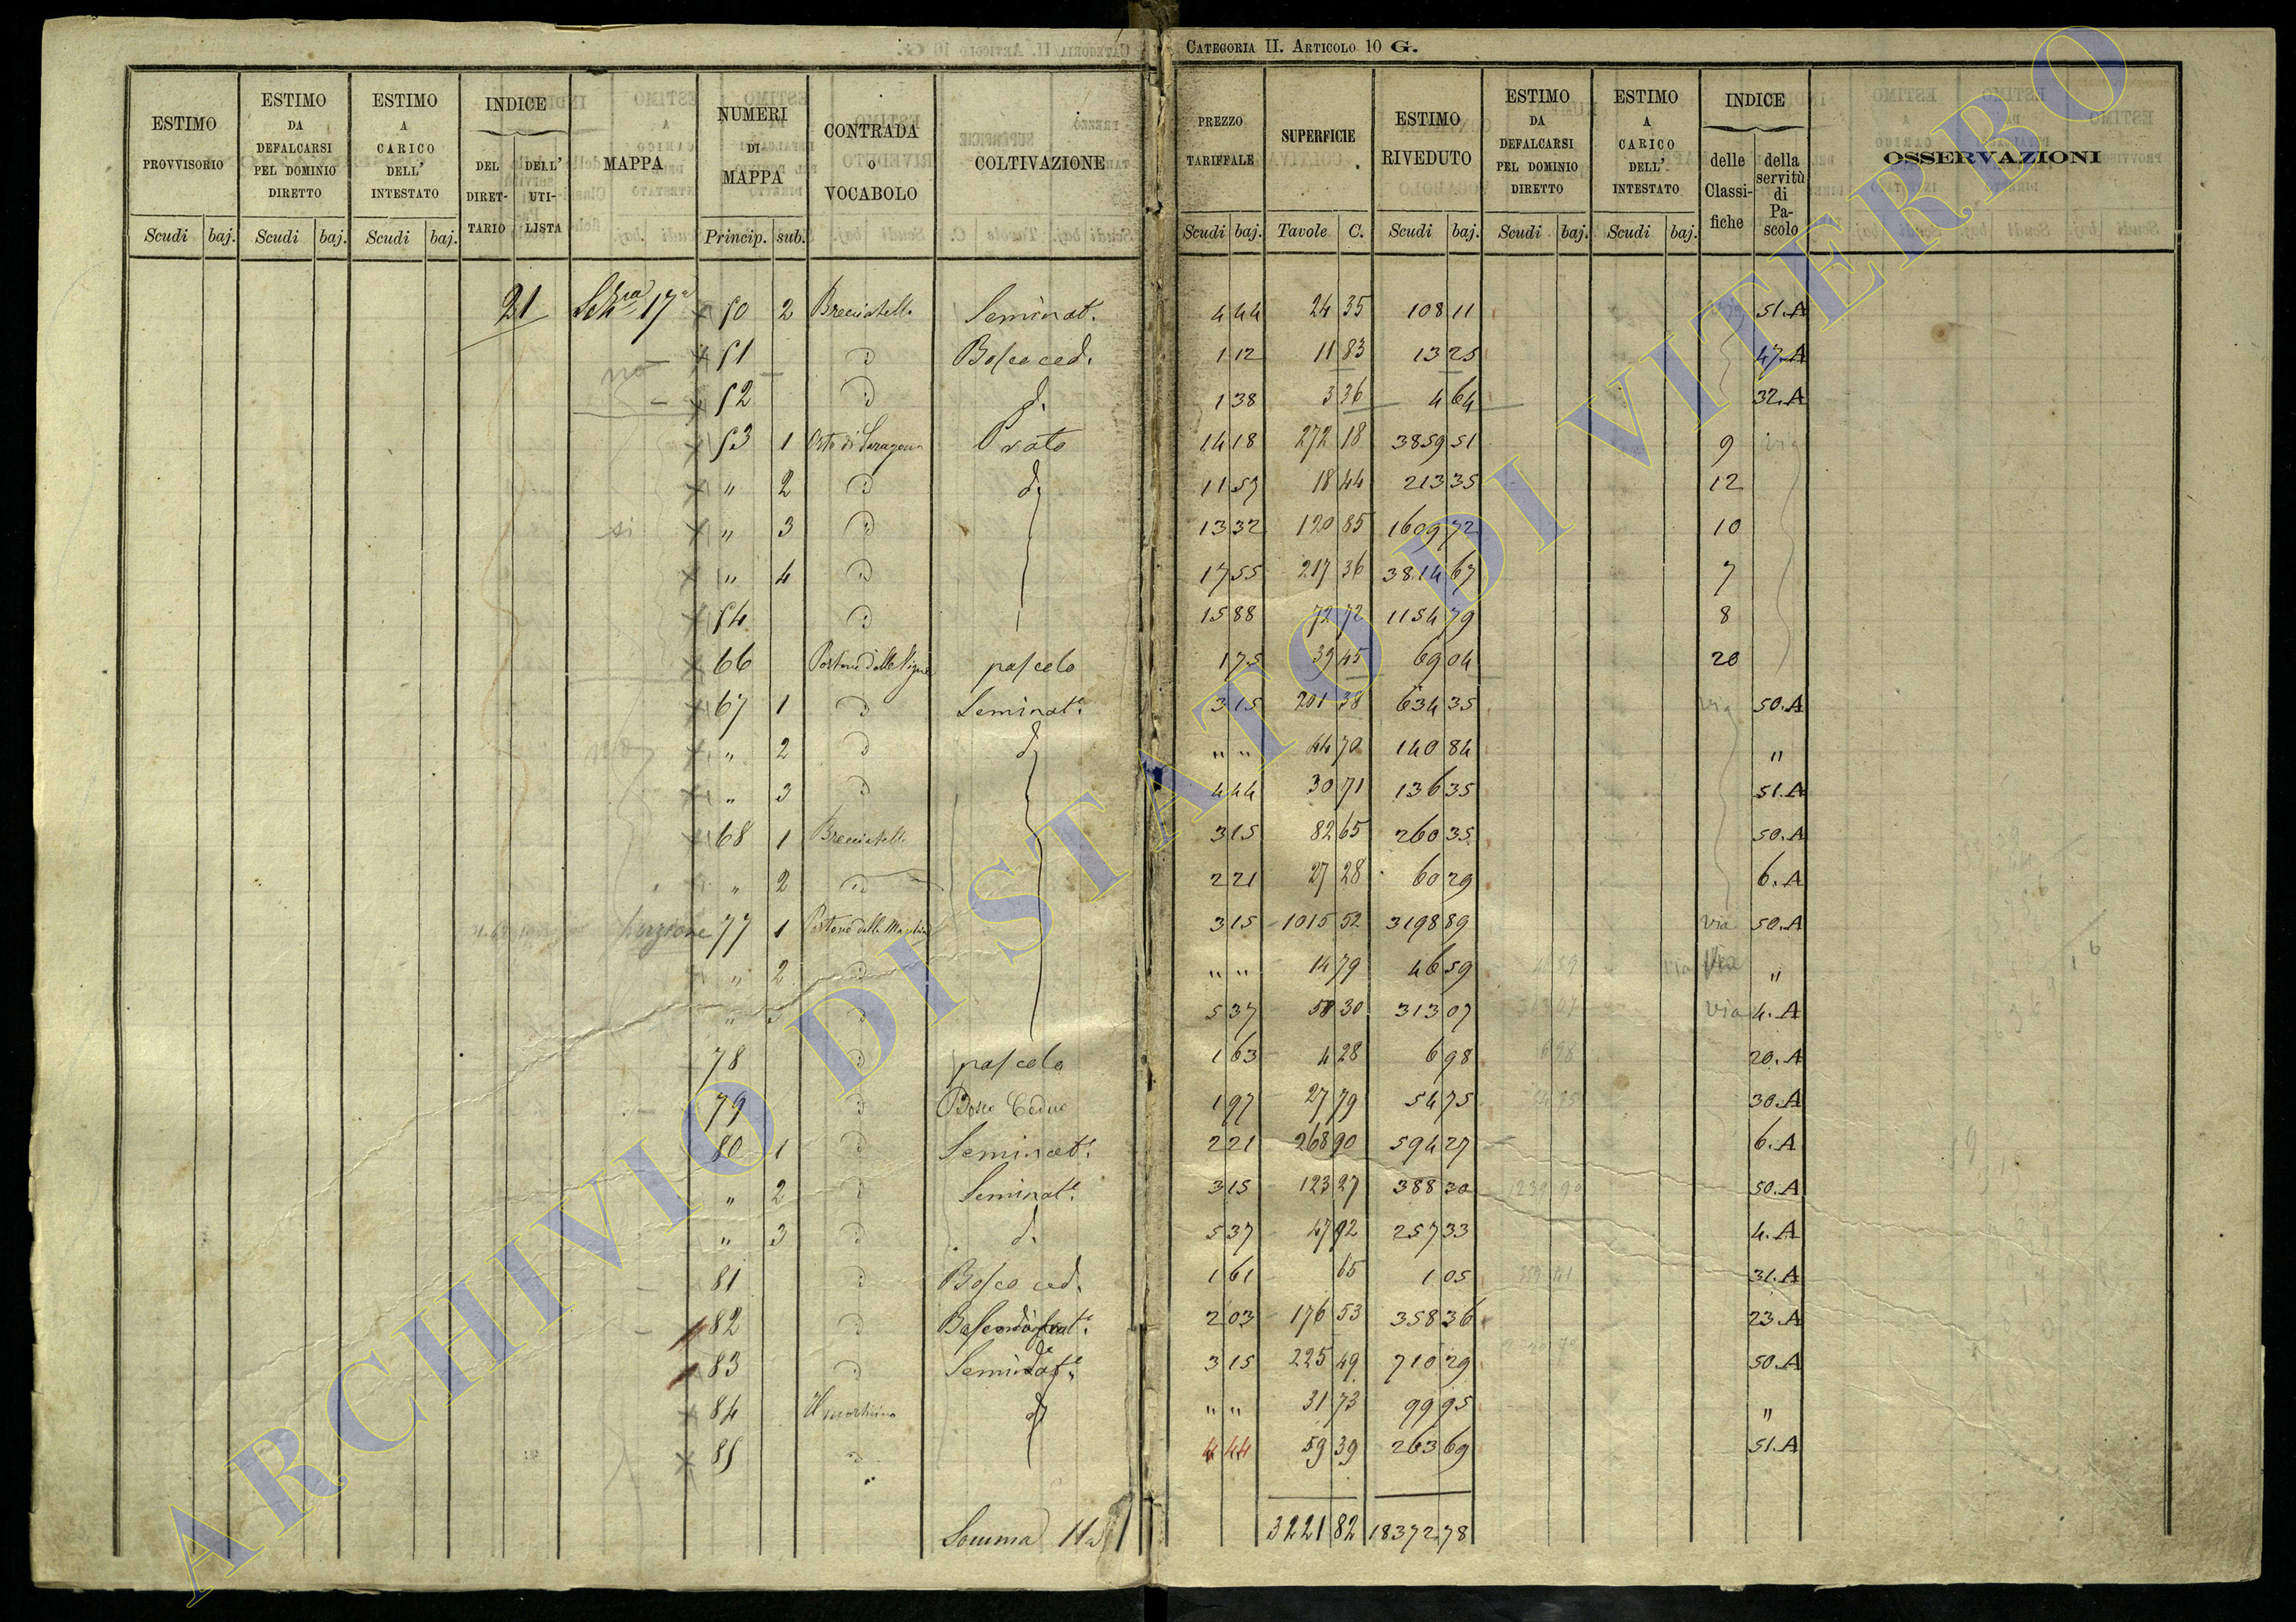 CATEGORIA II. ARTICOLO 10 G.
ESTIMO PROVVISORIO Scudi baj.
ESTIMO DA DEFALCARSI PEL DOMINIO DIRETTO Scudi baj.
ESTIMO A CARICO DELL' INTESTATO Scudi baj.
INDICE DEL DIRETTARIO DELL' UTILISTA
MAPPA
NUMERI DI MAPPA Princip. sub.
CONTRADA O VOCABOLO
COLTIVAZIONE
PREZZO TARIFFALE Scudi baj.
SUPERFICIE Tavole C.
ESTIMO RIVEDUTO Scudi baj.
ESTIMO DA DEFALCARSI PEL DOMINIO DIRETTO Scudi baj.
ESTIMO A CARICO DELL' INTESTATO Scudi baj.
INDICE delle Classifiche della servitù di Pascolo
OSSERVAZIONI
21 17a 50 2 Brecciatello Seminat. 4 44 24 35 108 11 51.A
no 51 " Bosco ced. 1 12 11 83 13 25 47.A
52 " d. 1 38 3 36 4 64 32.A
53 1 Prato 14 18 272 18 3859 51 9 via
" 2 " d. 11 57 18 44 213 35 12
si " 3 " 13 32 120 85 1609 72 10
" 4 " 17 55 217 36 3814 67 7
54 " 15 88 72 72 1154 79 8
66 Portone delle Vigne pascolo 1 75 39 45 69 04 20
67 1 " Seminat. 3 15 201 38 634 35 via 50.A
no " 2 " d. " " 44 70 140 84 "
" 3 " 4 44 30 71 136 35 51.A
68 1 Brecciatello 3 15 82 65 260 35 50.A
" 2 " 2 21 27 28 60 29 6.A
porzione 77 1 3 15 1015 52 3198 89 via 50.A
" 2 " " " 14 79 46 59 via via "
" 3 " 5 37 58 30 313 07 via 4.A
78 " pascolo 1 63 4 28 6 98 6 98 20.A
79 " Bosco Ceduo 1 97 27 79 54 75 30.A
80 1 " Seminat. 2 21 268 90 594 27 6.A
" 2 " Seminat. 3 15 123 27 388 30 50.A
" 3 " d. 5 37 47 92 257 33 4.A
81 " Bosco ced. 1 61 65 1 05 31.A
82 " 2 03 176 53 358 36 23.A
83 " Seminat. 3 15 225 49 710 29 50.A
84 d. " " 31 73 99 95 "
85 " 4 44 59 39 263 69 51.A
Somma 3221 82 18372 78
ARCHIVIO DI STATO DI VITERBO